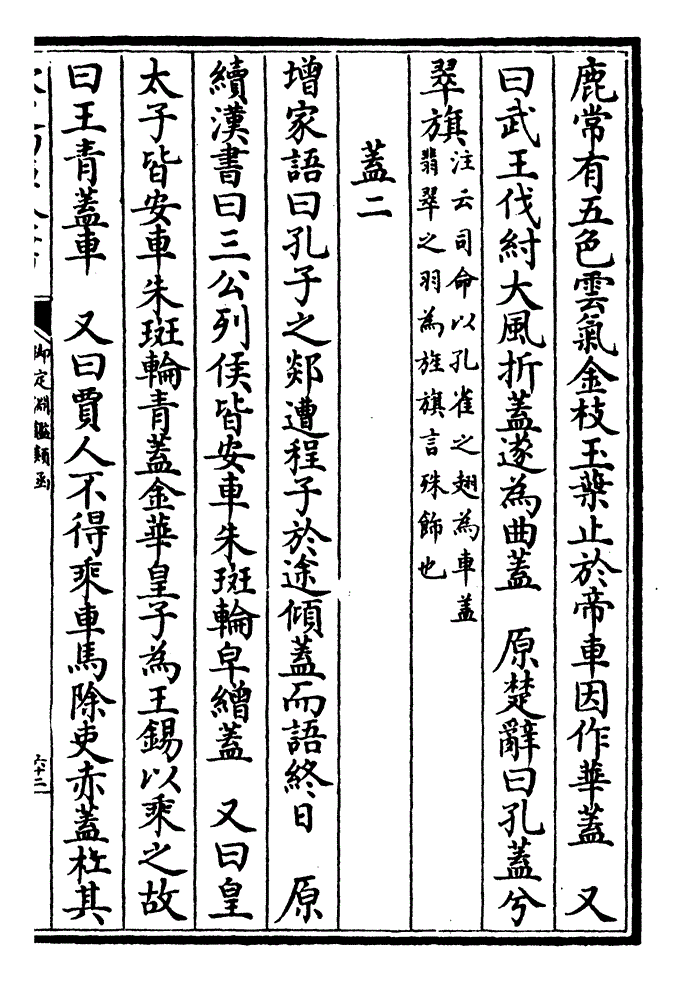 鹿常有五色雲氣金枝玉葉止於帝車因作華蓋　又
曰武王伐紂大風折蓋遂為曲蓋　原楚辭曰孔蓋兮
翠旗注云司命以孔雀之翅為車蓋
翡翠之羽為旌旗言殊飾也
蓋二
增家語曰孔子之郯遭程子於途傾蓋而語終日　原
續漢書曰三公列侯皆安車朱斑輪皁繒蓋　又曰皇
太子皆安車朱斑輪青蓋金華皇子為王錫以乘之故
曰王青蓋車　又曰賈人不得乘車馬除吏赤蓋杜其
御定淵鑑類函
六十二